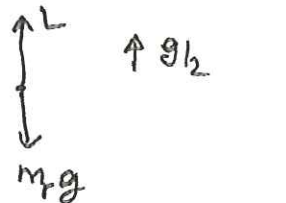 L
g/2
mg